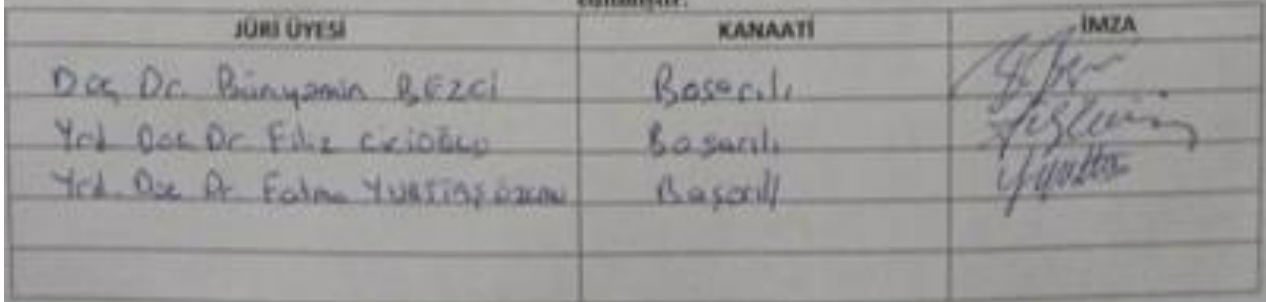 JÜRİ ÜYESİ KANAATİ İMZA
Doç. Dr. Bünyamin BEZCİ Başarılı
Yrd. Doç. Dr. Filiz CİCİOĞLU Başarılı
Yrd. Doç. Dr. Fatma YURTTAŞ ÖZCAN Başarılı